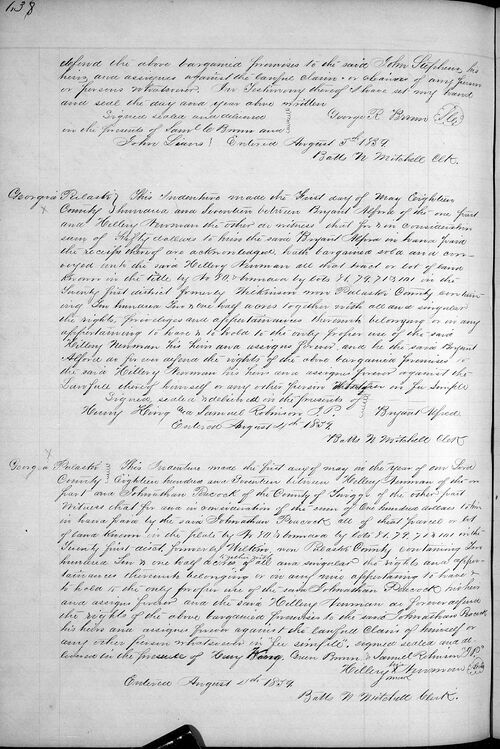 638
defend the above bargained premises to the said John Stephens his
heirs and assignes against the lawful claim or claims of any person
or persons whatsoever. In Testimony thereof I have set my hand
and seal the day and year above written
Signed sealed and delivered
George R. Brown
in the presents of Saml C Brown and
John Sivers Entered August 5th 1839.
Batts N Mitchell Clk.
Georgia Pulaski This Indenture made the First day of May Eighteen
County hundred and Seventeen between Bryant Alford of the one part
and Hillery Newman the other do witness that for & in consideration
sum of Fifty dollars to him the said Bryant Alford in hand paid
the receipt thereof are acknowledged hath bargained sold and con-
veyed unto the said Hillery Newman all that tract or lot of land
known in the by No 80 & bounded by lots 81, 79, 71 & 101 in the
Twenty first district formerly Wilkinson now Pulaski County contain-
ing Two hundred Two & one half acres together with all and singular
the rights, priveleges and appertainances thereunto belonging or in any
appertaining to have & to hold to the only proper use of the said
Hillery Newman his heirs and assigns forever and he the said Bryant
Alford do forever defend the rights of the above bargained premises to
the said Hillery Newman his heirs and assigns forever against the
Lawfull of himself or any other person in fee simple
Signed sealed & delivered in the presents of
Henry & Samuel Robinson J.P. Bryant Alford
Entered August 11th 1839
Batts N Mitchell Clerk
Georgia Pulaski This Indenture made the first day of may in the year of our Lord
County Eighteen hundred and Seventeen between Hillery Newman of the one
part and Johnathan Peacock of the County of Twiggs of the other part
Witness that for and in consideration of the sum of One hundred dollars to him
in hand paid by the said Johnathan Peacock all of that parcel or lot
of land known in the plats by No 80 & bounded by lots 81, 79, 71 & 101 in the
Twenty first dist. formerly now Pulaski County containing Two
hundred Two & one half acres of all and singular the rights and apper-
tainances thereunto belonging or in any wise appertaining to have &
to hold to the only proper use of the said Johnathan Peacock his heirs
and assigns forever and the said Hillery Newman do forever defend
the rights of the above bargained premises to the said Johnathan Peacock
his heirs and assigns forever against the lawfull Claim of himself or
any other person whatsoever in fee simple. signed sealed and de-
livered in the presents of Henry Green Brown & Samuel Robinson J.P.
Hillery X Newman
his
mark
Entered August 11th 1839.
Batts N Mitchell Clerk.